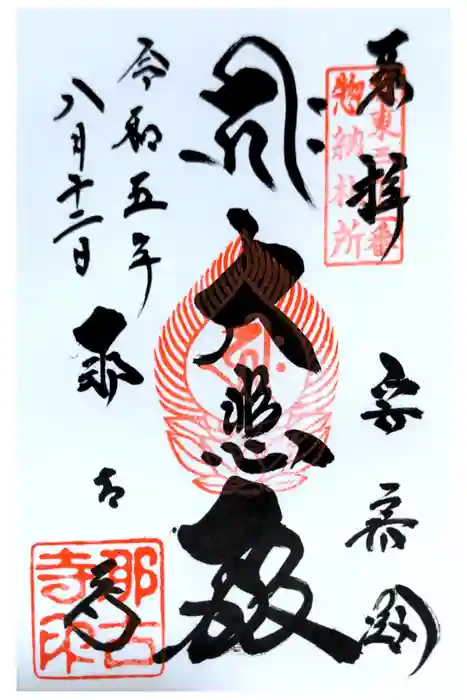 奉拝
坂東三十三番
惣納札所
安房国
大悲殿
令和五年
八月十二日
那古寺
那古
寺印